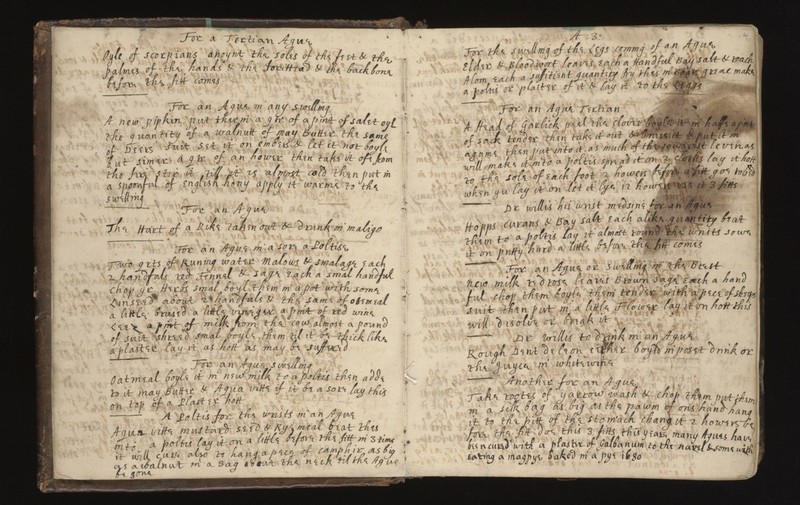 For a Tertian Ague
Oyle of scorpians anoynt the soles of the feet & the
palmes of the hands & the forehead & the back bone
before the fitt comes
For an Ague in any swelling
A new pipkin put therin a qr of a pint of salet oyl
the quantity of a walnut of may Butter the same
of Deers suit set it on embers & let it not boyle
but simer a qr of an hower then take it of from
the fire stop it till it is almost cold then put in
a spoonful of english hony apply it warme to the
swelling
For an Ague
The Hart of a Pike taken out & drink in maligo
For an Ague in a sore a Poltise
Two qrts of Runing water Malows & smalage Each
2 handfuls red Fennel & sage Each a smal handful
Chop ye Herbs smal boyl them in a pot with some
Linseed about 2 handfuls & the same of otemeal
a little brused a little vineger a pint of red wine
Lees a pint of milk from the cow almost a pound
of suit shred smal boyle them til it be thick like
a plaster lay it as hott as may be suffered
For an Ague swelling
Oatmeal boyle it in new milk to a poltis then adde
to it may Butter & Aqua vitte if it be a sore lay this
on top of a Plaster hott
A Poltis for the wrists in an Ague
Aqua vitte mustard seed & Rye meal beat thes
into a poltis lay it on a little before the fitt in 3 time
it will cure also to hang a pece of camphir as big
as a walnut in a Bag about the neck til the Ague
be gone
A 3
For the swelling of the Legs coming of an Ague
Elder & Bloodwort leaves Each a handful Bay salt & roach
Alom Each a sufitient quantity
a poltis or plaster of it & lay it to the Leggs
For an Ague Tertian
A Head of Garlick peel the cloves boyle it in halfe a pint
of sack tender then take it out & bruise it & put it in
againe then put into it as much of the sowrest Levin as
will make it into a poltis spread it on 2 cloths lay it hott
to the sole of each foot 2 howers before a fitt
when yu lay it on let it lye 12 howers use it 3 fitts
Dr willis his wrist medsine for an Ague
Hopps curans & Bay salt Each alike quantity beat
them to a poltis lay it almost round the wrists sowe
it on pritty hard a little before the fitt comes
For an Ague or swelling in the Brest
new milk red rose leaves Brown sage Each a hand
ful chop them boyle them tender with a pece of
suit then put in a little Flower lay it on hott this
will disolve or break it
Dr willis to drink in an Ague
Rough Dent de leon either boyle in poset drink or
the Juyce in whitewine
Another for an Ague
Take rootes of yarrow wash & chop them put them
in a silk bag as big as the pawm of ons hand hang
it to the pitt of the stomach chang it 2 howers be
fore the fitt doe this 3 fitts this yeare many Agues have
ben cured with a plaster of Galbanum to the navel & some with
eating a magpye baked in a pye 1680